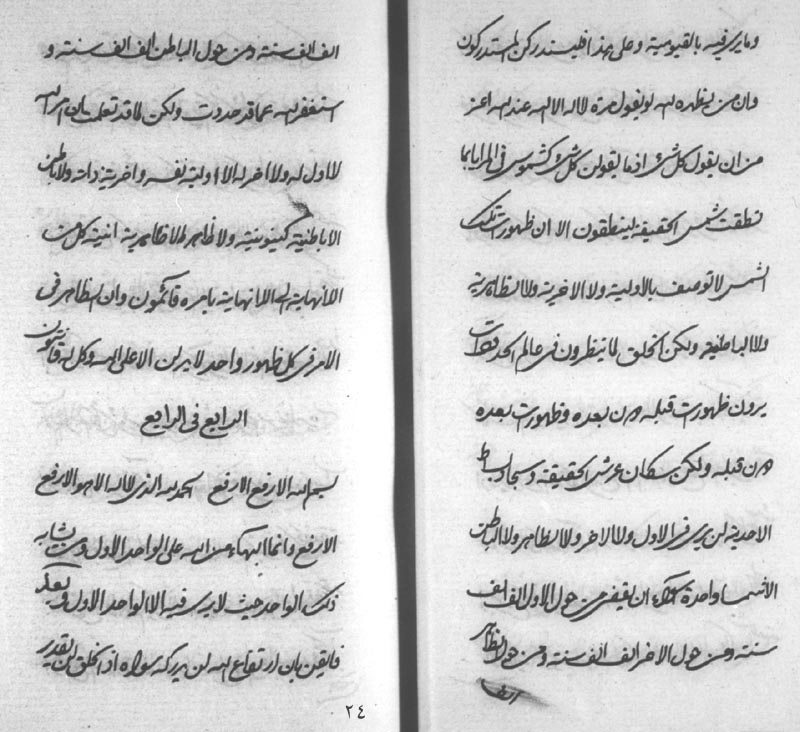 وما يرى فيه بالقيومية وعلى هذا فليستدركن المستدركون
وان من يظهره الله لو يقول مرة لا اله الا الله عند الله اعز
من ان يقول كل شيء اذ ما يقولن كل شيء كشموس في المرايا بما
نطقت شمس الحقيقة لينطقون الا ان ظهورات تلك
الشمس لا توصف بالاولية ولا الاخرية ولا الظاهرية
ولا الباطنية ولكن الخلق لما ينظرون في عالم الحد
يرون ظهورات قبله من بعده وظهورات بعده
من قبله ولكن سكان عرش الحقيقة وسجاد بساط
الاحدية لن يرى فيه الاول ولا الاخر ولا الظاهر ولا الباطن
الا شمسا واحدة ان يقبض من حول الاول الف الف
سنة ومن حول الاخر الف الف سنة ومن حول الظاهر
الف
الف الف سنة ومن حول الباطن الف الف سنة و
استغفر الله عما قد حددت ولكن لما قد تعلمت بان امر الله
لا اول له ولا اخر له الا اولية نفسه واخرية ذاته ولا باطن
الا باطنية كينونيته ولا ظاهر له الا ظاهرية انيته كل من
اللانهاية الى اللانهاية بامره قائمون وان الظاهر في
الامر في كل ظهور واحد لا يرى الا على الله وكل له قانتون
الرابع في الرابع
بسم الله الارفع الارفع الحمد لله الذي لا اله الا هو الارفع
الارفع وانما البهاء من الله على الواحد الاول ومن يشابه
ذلك الواحد حيث لا يرى فيه الا الواحد الاول وبعد
فايقن بان ارتفاع الله لن يدركه سواه اذ الخلق لن يقدر
٢٤